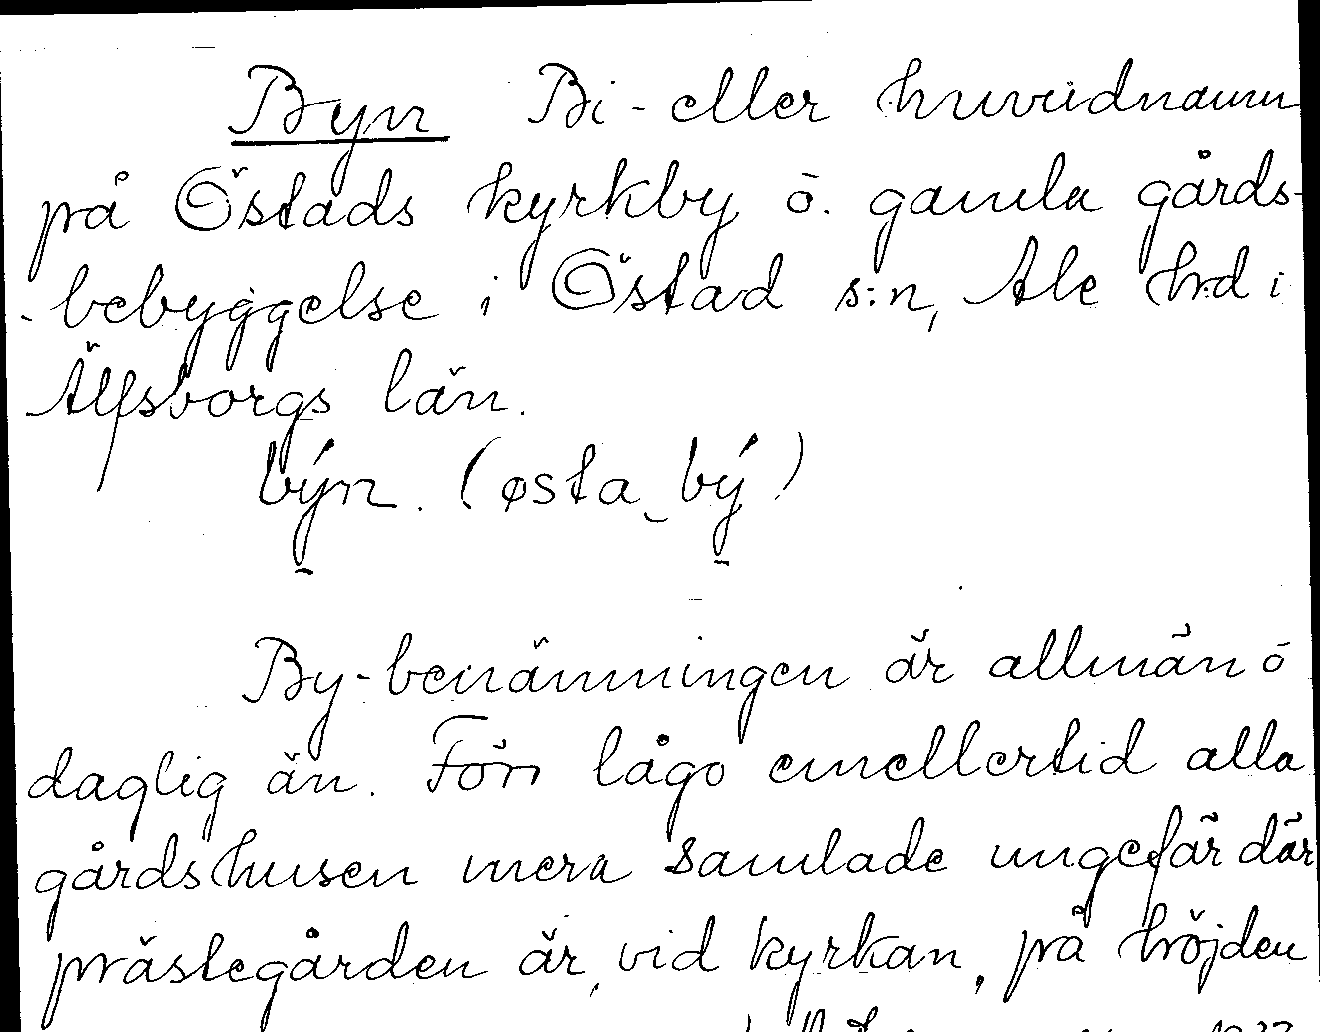 Byn Bi- eller huvudnamn
på Östads kyrkby o. gamla gårds-
-bebyggelse i Östad s:n, Ale hd i
Älfsborgs län.
býn. (østa_bý)
By-benämningen är allmän o
daglig än. Förr lågo emellertid alla
gårdshusen mera samlade ungefär där
prästegården är, vid kyrkan, på höjden